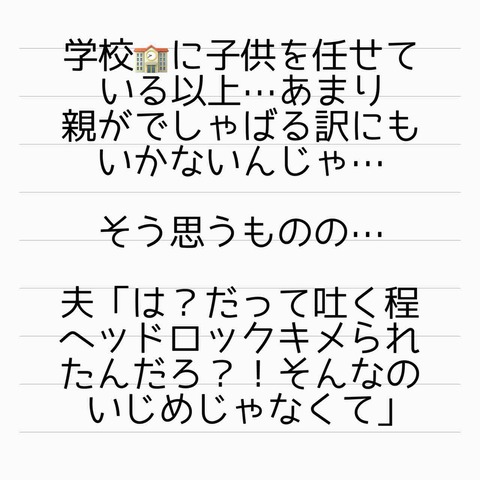 学校🏫に子供を任せて
いる以上…あまり
親がでしゃばる訳にも
いかないんじゃ…
そう思うものの…
夫「は？だって吐く程
ヘッドロックキメられ
たんだろ？！そんなの
いじめじゃなくて」